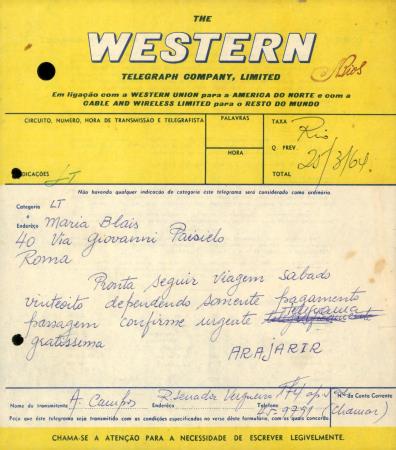 THE
WESTERN
TELEGRAPH COMPANY, LIMITED
Em ligação com a WESTERN UNION para a AMERICA DO NORTE e com a
CABLE AND WIRELESS LIMITED para o RESTO DO MUNDO
CIRCUITO, NUMERO, HORA DE TRANSMISSÃO E TELEGRAFISTA
PALAVRAS
HORA
TAXA
Q. PREV.
TOTAL
Rio,
25/3/64
INDICAÇÕES LT
Não havendo qualquer indicacão de categoria êste telegrama será considerado como ordinário.
Categoria LT
e
Endereço Maria Blais
40 Via Giovanni Paisielo
Roma
Pronta seguir viagem sábado
vinteoito dependendo somente pagamento
passagem confirme urgente telegrama
gratissima
ARAJARIR
Nome do transmitente A. Campos
Endereço R. Senador Vergueiro
Telefone
(chamar)
Nº da Conta Corrente
Peço que êste telegrama seja transmitido com as condições especificadas no verso dêste formulário, com as quais concordo.
CHAMA-SE A ATENÇÃO PARA A NECESSIDADE DE ESCREVER LEGIVELMENTE.